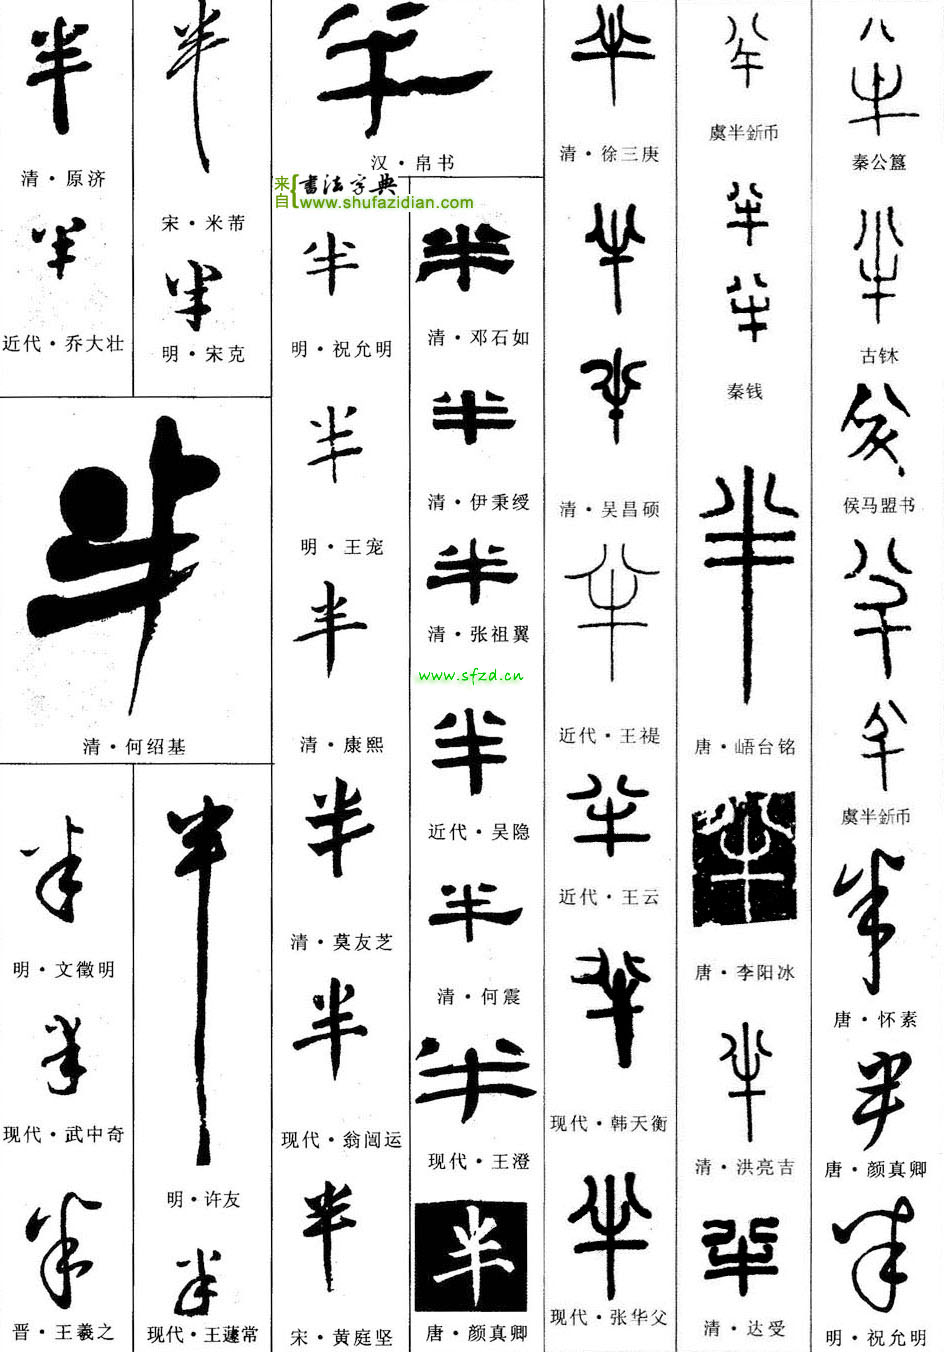 半
清·原济
半
近代·乔大壮
半
宋·米芾
半
明·宋克
半
清·何绍基
半
明·文徵明
半
现代·武中奇
半
晋·王羲之
半
明·许友
半
现代·王蘧常
半
汉·帛书
来自{书法字典
www.shufazidian.com
半
明·祝允明
半
明·王宠
半
清·康熙
半
清·莫友芝
半
现代·翁闿运
半
宋·黄庭坚
半
清·邓石如
半
清·伊秉绶
半
清·张祖翼
www.sfzd.cn
半
近代·吴隐
半
清·何震
半
现代·王澄
半
唐·颜真卿
半
清·徐三庚
半
半
清·吴昌硕
半
近代·王禔
半
近代·王云
半
现代·韩天衡
半
现代·张华父
半
虞半釿币
半
半
秦钱
半
唐·峿台铭
半
唐·李阳冰
半
清·洪亮吉
半
清·达受
半
秦公簋
半
古鉢
半
侯马盟书
半
半
虞半釿币
半
唐·怀素
半
唐·颜真卿
半
明·祝允明